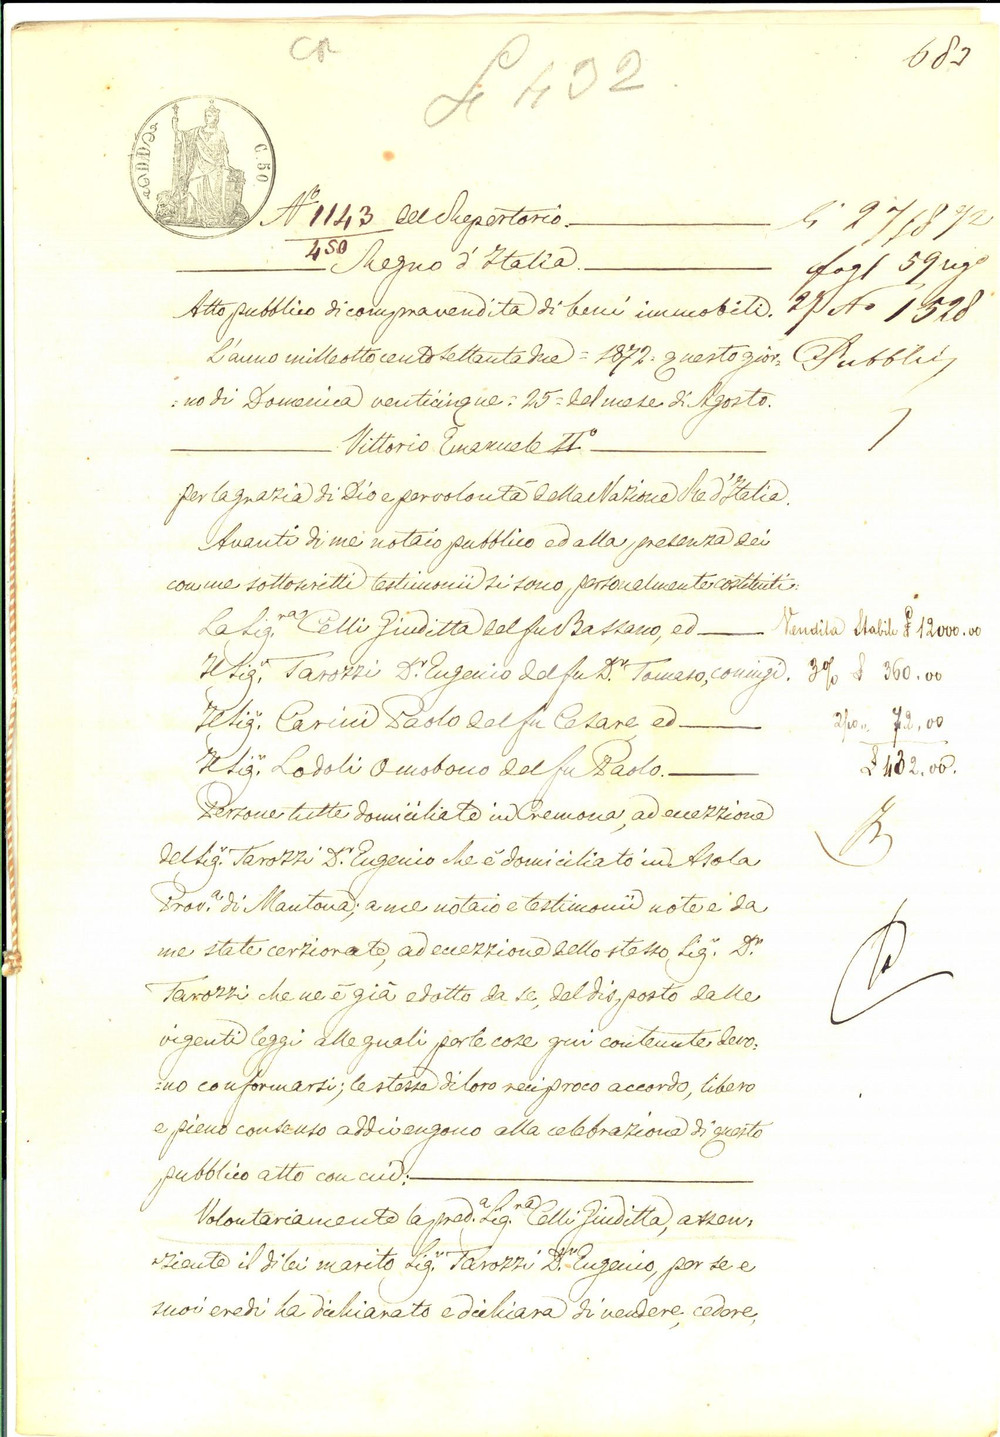 CR
£ 432
683
C. 50
N.° 1143 del Repertorio.
450
Regno d'Italia.
Li 27/8 72
fogl 59 reg°
27 N° 1528
Pubblici
Atto pubblico di compravendita di beni immobili.
L'anno milleottocentosettantadue = 1872 = questo gior=
=no di Domenica venticinque = 25 = del mese di Agosto.
Vittorio Emanuele II°
per la grazia di Dio e per volontà della Nazione Re d'Italia.
Avanti di me notaio pubblico ed alla presenza dei
con me sottoscritti testimonii si sono personalmente costituiti:
La Sig.ra Celli Giuditta del fu Bassano, ed
Il Sig.r Tarozzi D.r Eugenio del fu D.r Tomaso, conjugi.
Il Sig.r Carini Paolo del fu Cesare ed
Il Sig.r Lodoli Omobono del fu Paolo.
Vendita Stabile £ 12000.00
3% £ 360.00
2/10 72.00
£ 432.00.
Persone tutte domiciliate in Cremona, ad eccezione
del Sig.r Tarozzi D.r Eugenio che è domiciliato in Asola
Prov.a di Mantova; a me notaio e testimonii note e da
me state cerziorate, ad eccezione dello stesso Sig.r D.r
Tarozzi che ne è già edotto da se, del disposto dalle
vigenti leggi alle quali per le cose qui contenute devo=
=no conformarsi; le stesse di loro reciproco accordo, libero
e pieno consenso addivengono alla celebrazione di questo
pubblico atto con cui:
Volontariamente la pred.a Sig.ra Celli Giuditta, assen=
ziente il di lei marito Sig.r Tarozzi D.r Eugenio, per se e
suoi eredi ha dichiarato e dichiara di vendere, cedere,